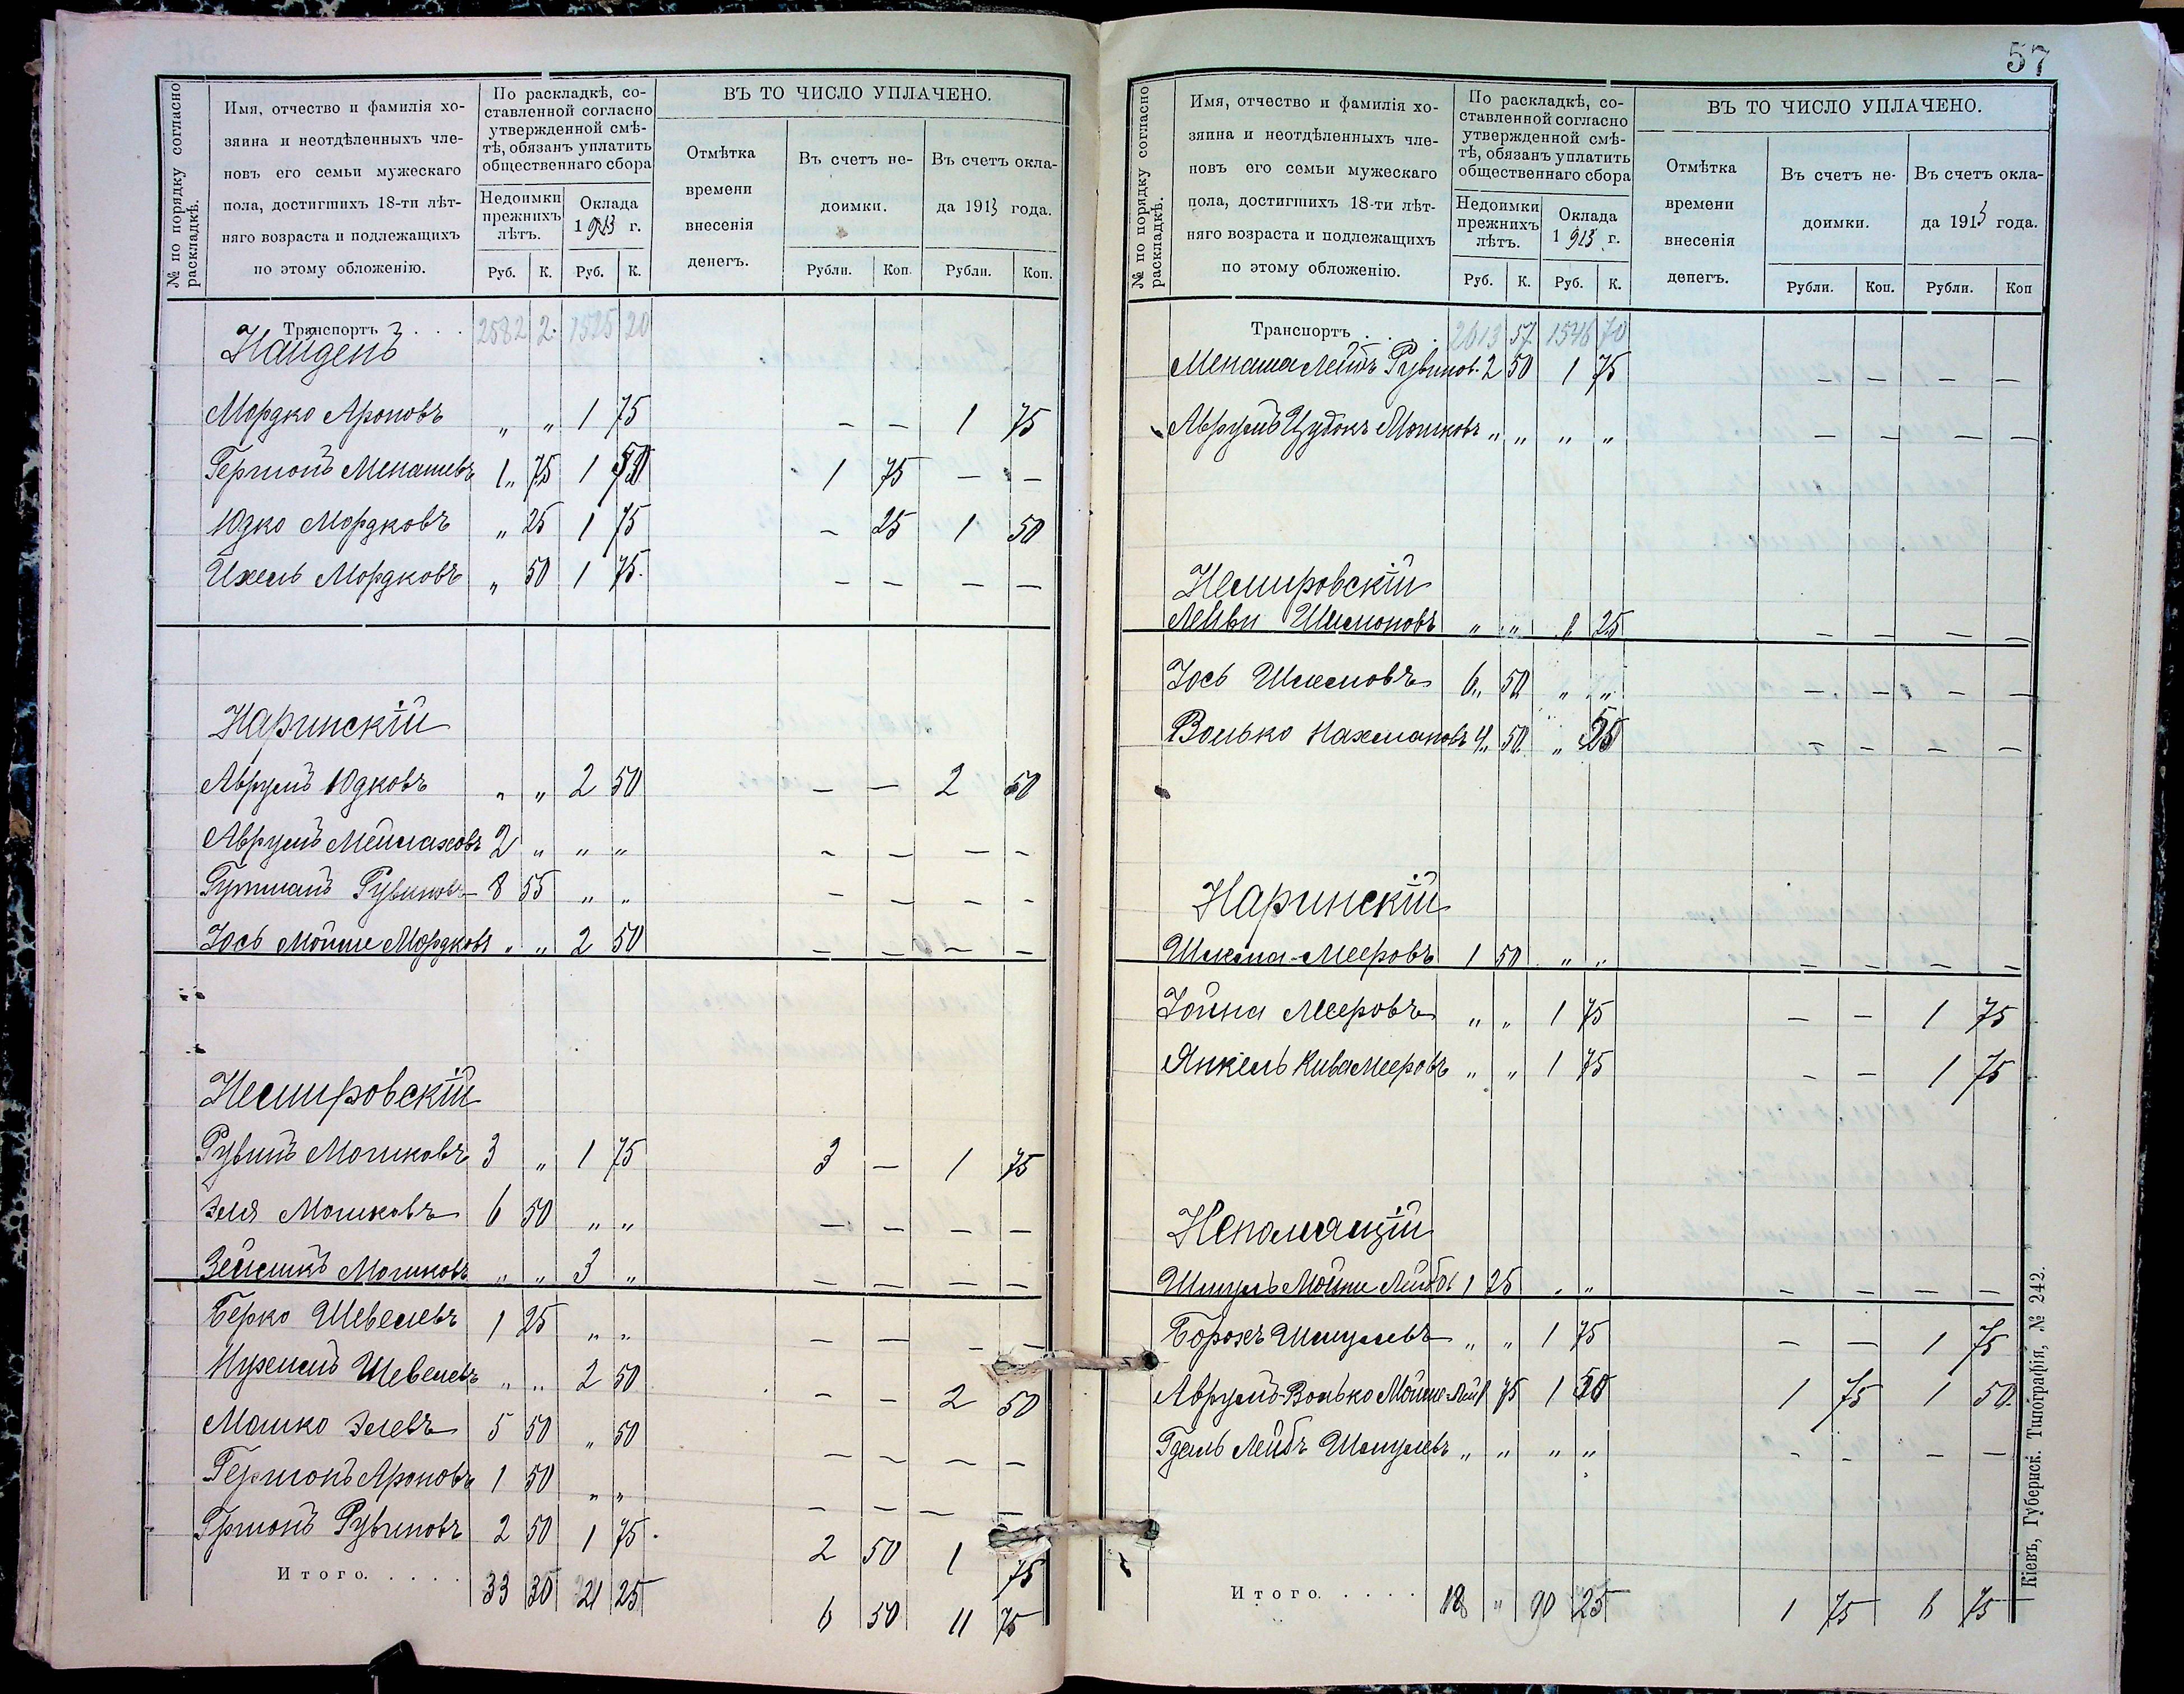 № по порядку согласно раскладкѣ.
Имя, отчество и фамилія хо-
зяина и неотдѣленныхъ чле-
новъ его семьи мужескаго
пола, достигшихъ 18-ти лѣт-
няго возраста и подлежащихъ
по этому обложенію.
По раскладкѣ, со-
ставленной согласно
утвержденной смѣ-
тѣ, обязанъ уплатить
общественнаго сбора
Недоимки прежнихъ лѣтъ.
Оклада 1913 г.
Руб. К. Руб. К.
ВЪ ТО ЧИСЛО УПЛАЧЕНО.
Отмѣтка
времени
внесенія
денегъ.
Въ счетъ не-
доимки.
Въ счетъ окла-
да 1913 года.
Рубли. Коп. Рубли. Коп.
Транспортъ . . . 2582 2 1525 20
Найденъ
Мордко Ароновъ " " 1 75 — — 1 75
Гершонъ Менашевъ 1 75 1 50 1 75 — —
Юдко Мордковъ " 25 1 75 — 25 1 50
Ихель Мордковъ " 50 1 75 — — — —
Наринскій
Аврумъ Юдковъ " " 2 50 — — 2 50
Аврумъ Мейлаховъ 2 " " " — — — —
Гутманъ Рувиновъ 8 55 " " — — — —
Іось Мойше Мордковъ " " 2 50 — — — —
Немировскій
Рувинъ Мошковъ 3 " 1 75 3 — 1 75
Эля Мошковъ 6 50 " " — — — —
Зейликъ Мошковъ " " 3 " — — — —
Берко Шевелевъ 1 25 " " — — — —
Нухимъ Шевелевъ " " 2 50 — — 2 50
Мошко Элевъ 5 50 " 50 — — — —
Гершонъ Ароновъ 1 50 " " — — — —
Гершонъ Рувиновъ 2 50 1 75 2 50 1 75
Итого. . . . . 33 30 21 25 6 50 11 75
57
№ по порядку согласно раскладкѣ.
Имя, отчество и фамилія хо-
зяина и неотдѣленныхъ чле-
новъ его семьи мужескаго
пола, достигшихъ 18-ти лѣт-
няго возраста и подлежащихъ
по этому обложенію.
По раскладкѣ, со-
ставленной согласно
утвержденной смѣ-
тѣ, обязанъ уплатить
общественнаго сбора
Недоимки прежнихъ лѣтъ.
Оклада 1913 г.
Руб. К. Руб. К.
ВЪ ТО ЧИСЛО УПЛАЧЕНО.
Отмѣтка
времени
внесенія
денегъ.
Въ счетъ не-
доимки.
Въ счетъ окла-
да 1913 года.
Рубли. Коп. Рубли. Коп
Транспортъ . . . . 2613 57 1546 70
Менаша Лейбъ Рувинов. 2 50 1 75 — — — —
Аврумъ Цудокъ Мошковъ " " " " — — — —
Немировскій
Лейви Шимоновъ " " 1 25 — — — —
Іось Шлемовъ 6 50 " " — — — —
Волько Нахмановъ 4 50 " 50 — — — —
Наринскій
Шлема Мееровъ 1 50 " " — — — —
Іойна Мееровъ " " 1 75 — — 1 75
Янкель Кива Мееровъ " " 1 75 — — 1 75
Непомящій
Шмуль Мойше Лейбов 1 25 " " — — — —
Борохъ Шмулевъ " " 1 75 — — 1 75
Аврумъ-Волько Мойше-Лей 1 75 1 50 1 75 1 50
Гдаль Лейбъ Шмулевъ " " " " — — — —
Итого. . . . . 18 " 90 25 1 75 6 75
Кіевъ, Губернск. Типографія, № 242.